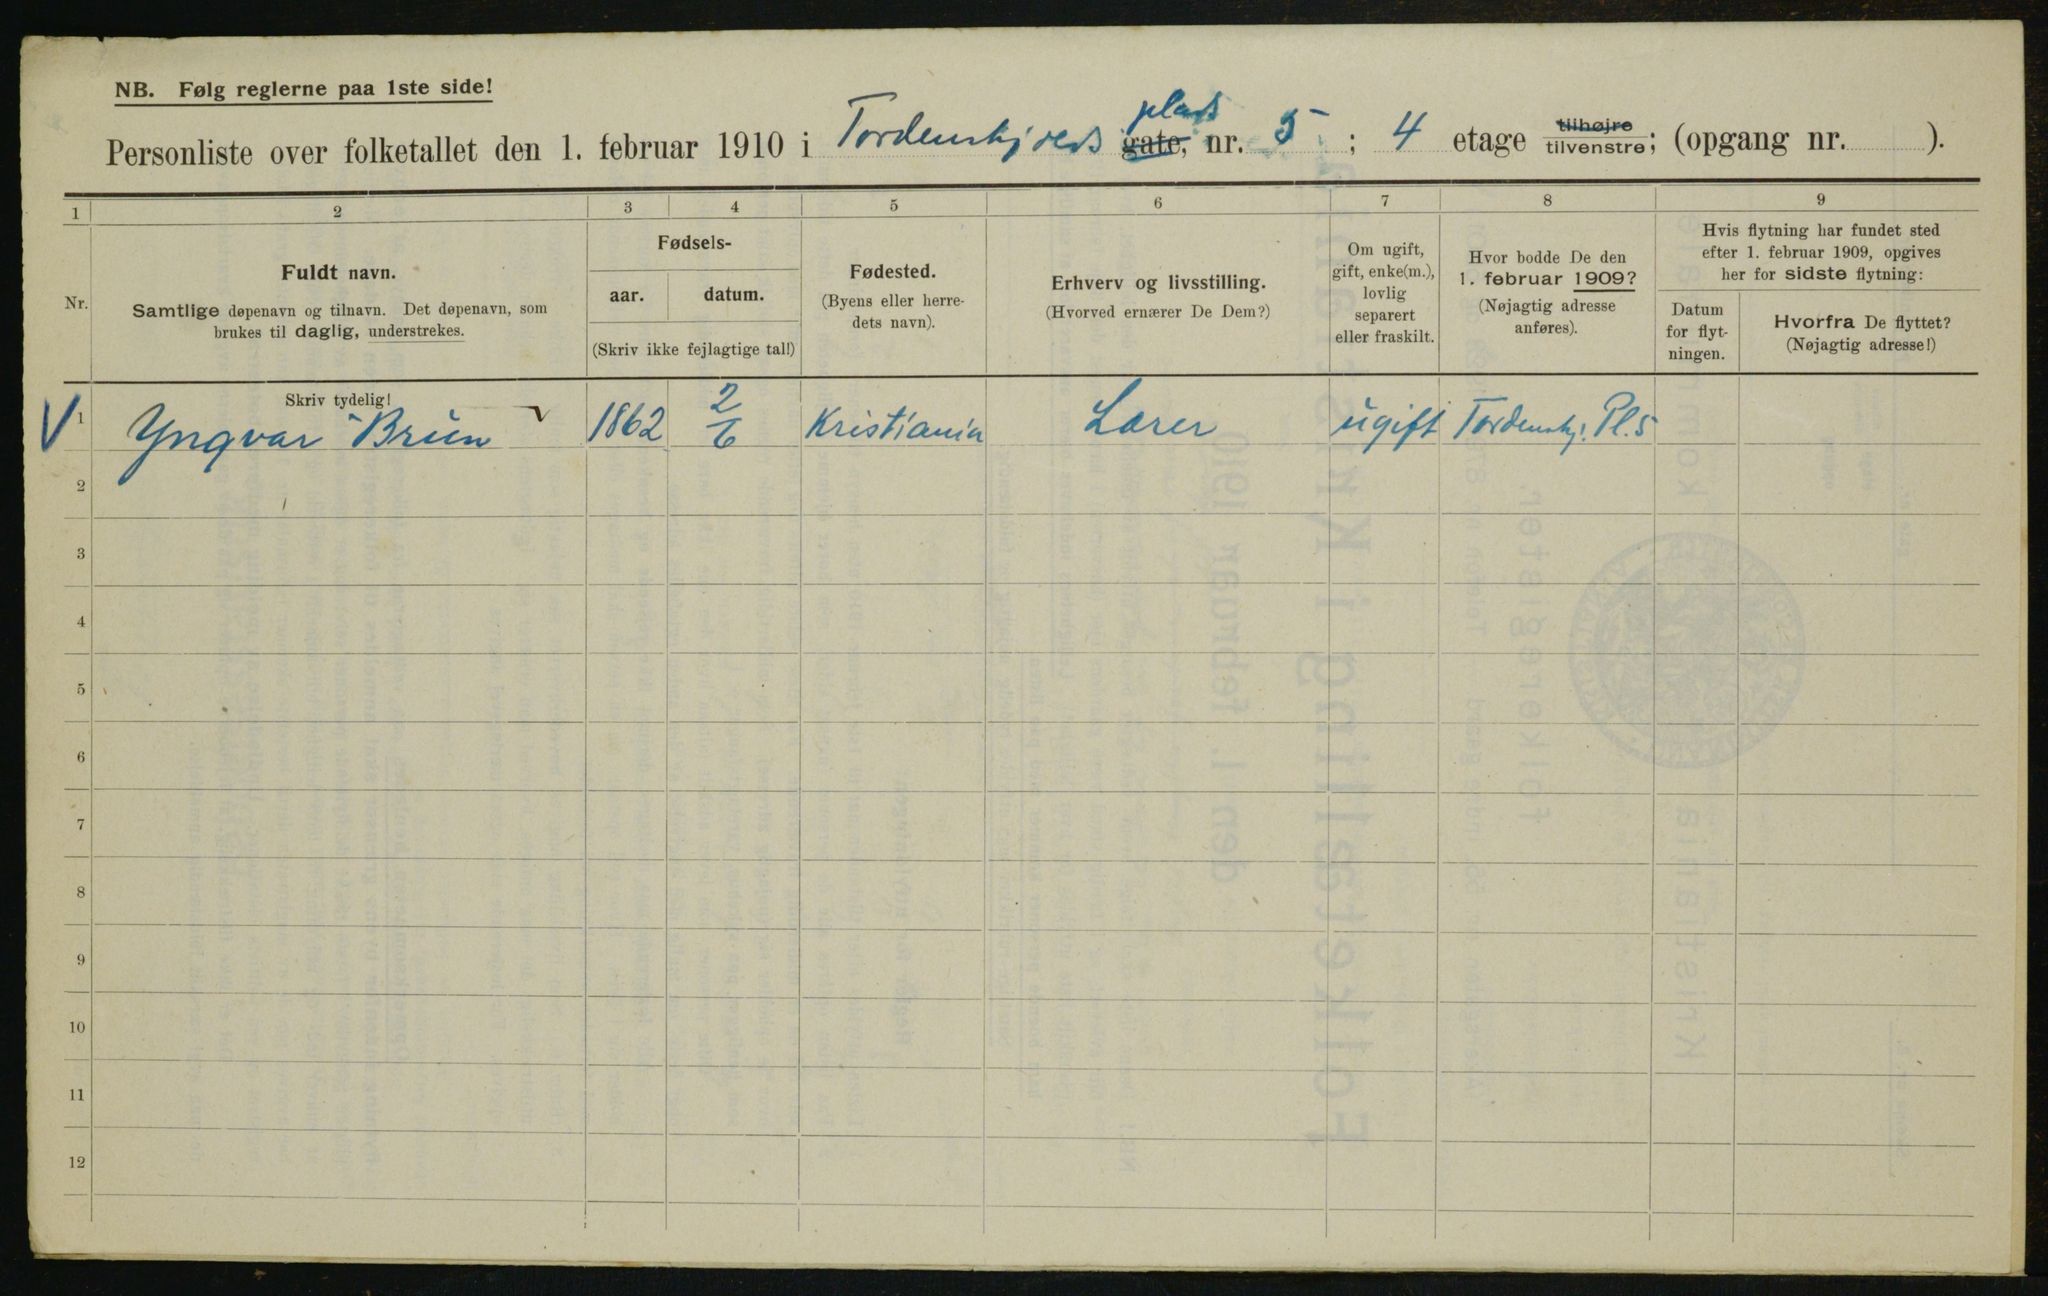 NB. Følg reglerne paa 1ste side!
plads
Personliste over folketallet den 1. februar 1910 i Tordenskjolds gate, nr. 5 ; 4 etage tilhøjre tilvenstre; (opgang nr. ).
1 2 3 4 5 6 7 8 9
Nr.
Fuldt navn.
Samtlige døpenavn og tilnavn. Det døpenavn, som
brukes til daglig, understrekes.
Skriv tydelig!
Fødsels-
aar. datum.
(Skriv ikke fejlagtige tal!)
Fødested.
(Byens eller herre-
dets navn).
Erhverv og livsstilling.
(Hvorved ernærer De Dem?)
Om ugift,
gift, enke(m.),
lovlig
separert
eller fraskilt.
Hvor bodde De den
1. februar 1909?
(Nøjagtig adresse
anføres).
Hvis flytning har fundet sted
efter 1. februar 1909, opgives
her for sidste flytning:
Datum
for flyt-
ningen.
Hvorfra De flyttet?
(Nøjagtig adresse!)
1 Yngvar Brun 1862 2/6 Kristiania Lærer ugift Tordenskj. Pl. 5
2
3
4
5
6
7
8
9
10
11
12